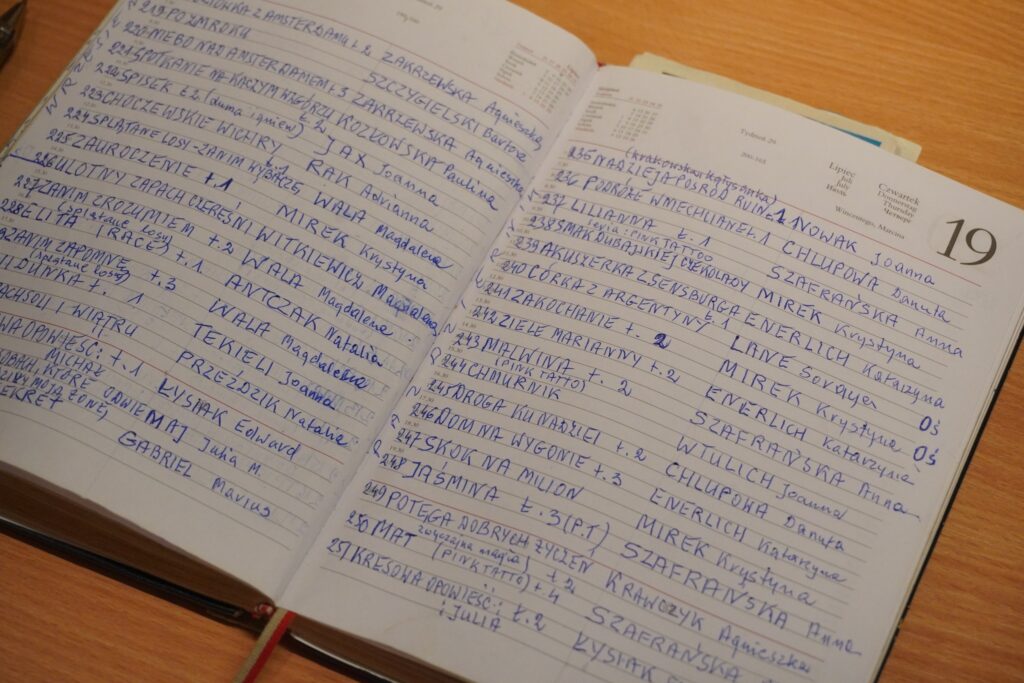 Tydzień 29
POCZTÓWKA Z AMSTERDAMU t. 2 ZAKRZEWSKA Agnieszka
219 PO ZMROKU SZCZYGIELSKI Bartosz
220 NIEBO NAD AMSTERDAMEM t. 3 ZAKRZEWSKA Agnieszka
221 SPOTKANIE NA KACZYM WZGÓRZU KOZŁOWSKA Paulina
222 SPISEK t. 2 (duma i gniew) JAX Joanna
223 CHOCZEWSKIE WICHRY t. 2 RAK Adrianna
224 SPLĄTANE LOSY - ZANIM WYBACZĘ WALA Magdalena
225 ZAUROCZENIE t. 1 MIREK Krystyna
226 ULOTNY ZAPACH CZEREŚNI WITKIEWICZ Magdalena
227 ZANIM ZROZUMIEM t. 2 WALA Magdalena
(splątane losy)
228 ELITA (RACE) t. 1 ANTCZAK Natalia
ZANIM ZAPOMNĘ t. 3 WALA Magdalena
(splątane losy)
DUNKA t. 1 TEKIELI Joanna
ZAPACH SOLI I WIATRU PRZEŹDZIK Natalia
OPOWIEŚĆ: t. 1 ŁYSIAK Edward
MICHAŁ
KTÓRE ODWIE MAJ Julia M.
MOJĄ ŻONĘ
SEKRET GABRIEL Marius
Tydzień 29
200-165
Lipiec
Juli
July
Czwartek
Donnerstag
Thursday
19
Wincentego, Marcina
(krakowska kołysanka)
235 NADZIEJA POŚRÓD RUIN t. 1 NOWAK Joanna
236 PODRÓŻE W NIECHCIANE t. 1 CHLUPOWA Danuta
237 LILIANNA t. 1 SZAFRAŃSKA Anna
seria: PINK TATOO
238 SMAK DUBAJSKIEJ CZEKOLADY MIREK Krystyna
239 AKUSZERKA Z SENSBURGA t. 1 ENERLICH Katarzyna
240 CÓRKA Z ARGENTYNY LANE Soraya
241 ZAKOCHANIE t. 2 MIREK Krystyna OŚ
242 ZIELE MARIANNY t. 2 ENERLICH Katarzyna OŚ
243 MALWINA t. 2 SZAFRAŃSKA Anna
(PINK TATTO)
244 CHMURNIK WTULICH Joanna
245 DROGA KU NADZIEI t. 2 CHLUPOWA Danuta
246 DOM NA WYGONIE t. 3 ENERLICH Katarzyna
247 SKOK NA MILION MIREK Krystyna
248 JAŚMINA t. 3 (P.T) SZAFRAŃSKA Anna
249 POTĘGA DOBRYCH ŻYCZEŃ KRAWCZYK Agnieszka
zwyczajna magia) t. 2
250 MAT (PINK TATTO) t. 4 SZAFRAŃSKA
251 KRESOWA OPOWIEŚĆ: t. 2 ŁYSIAK
: JULIA